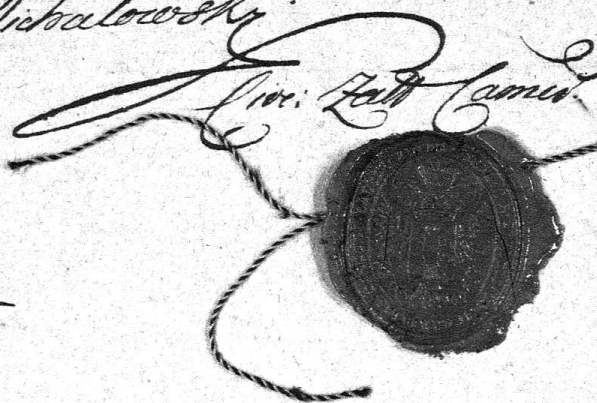 Michalowsky
Civi: Zatt Camer.